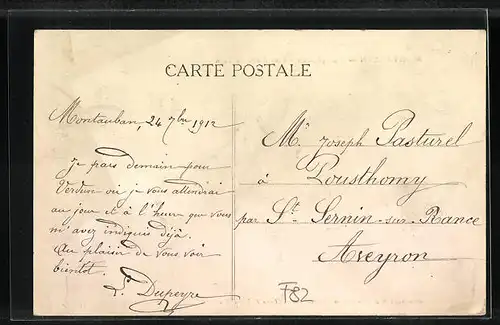 CARTE POSTALE
Montauban, 24 7bre 1912
Je pars demain pour
Verdun où je vous attendrai
au jour et à l'heure que vous
m'avez indiqués déjà.
Au plaisir de vous voir
bientôt.
Dupeyre
Mr. Joseph Pasturel
à Pousthomy
par St. Sernin-sur-Rance
Aveyron
F82